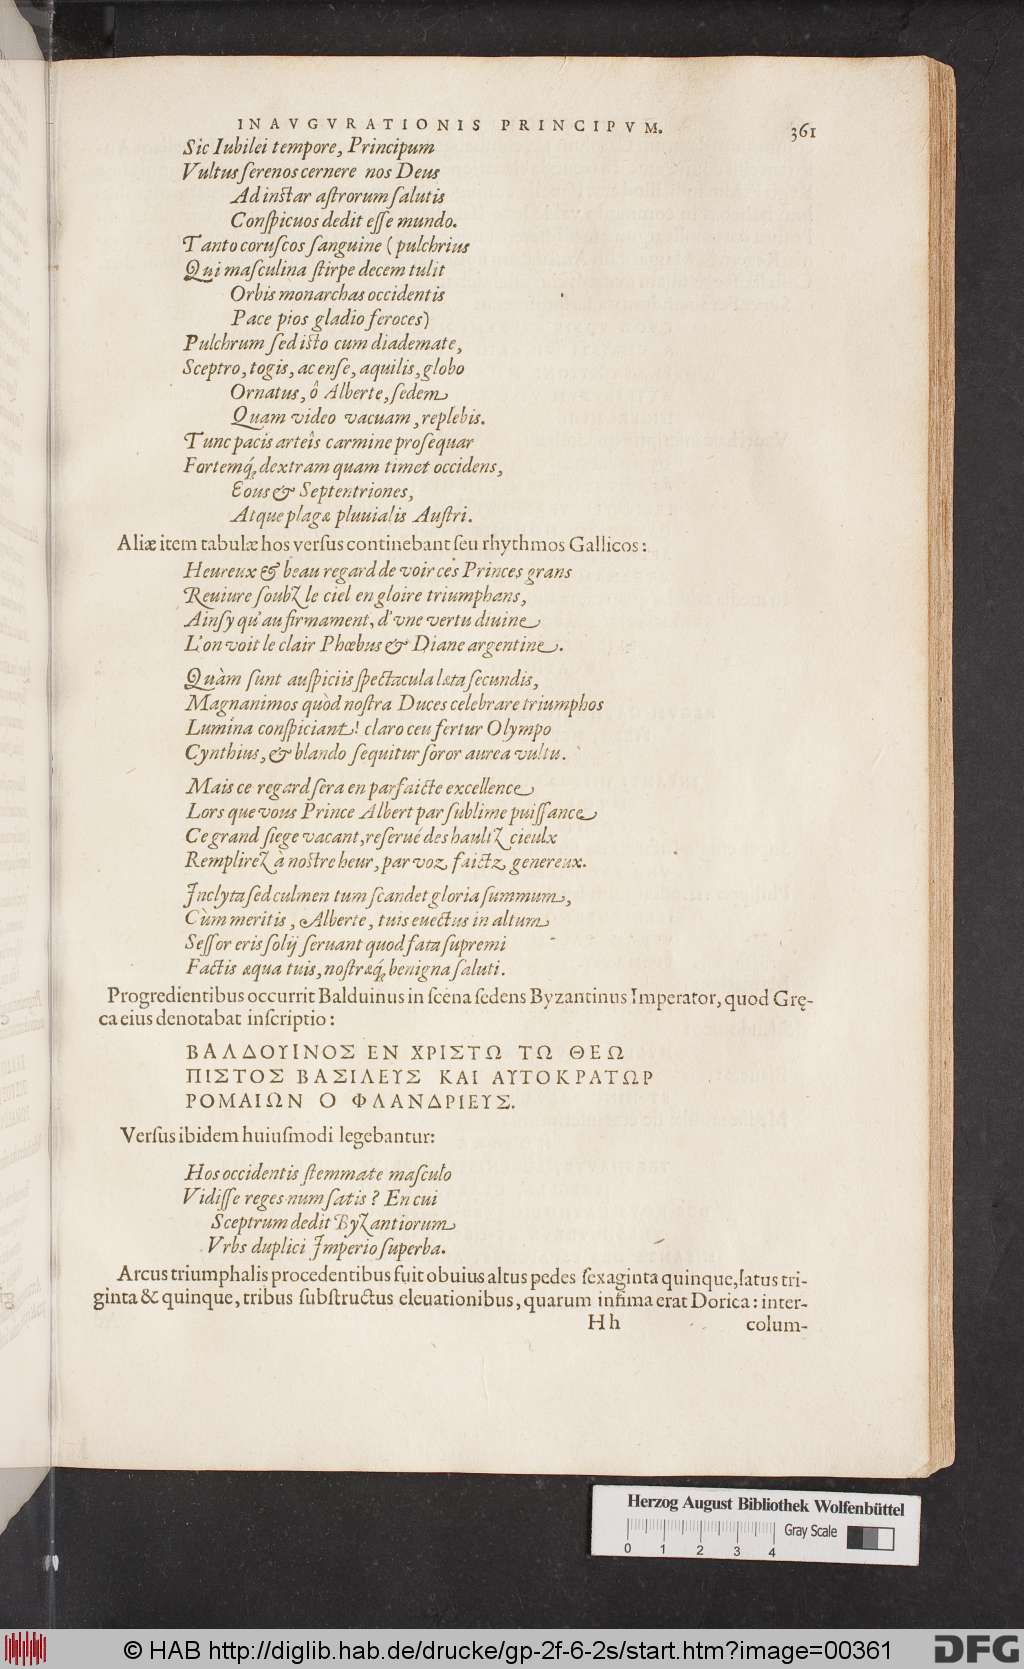 INAVGVRATIONIS PRINCIPVM. 361
Sic Iubilei tempore, Principum
Vultus ſerenos cernere nos Deus
Ad inſtar aſtrorum ſalutis
Conſpicuos dedit eſſe mundo.
Tanto coruſcos ſanguine (pulchrius
Qui maſculina ſtirpe decem tulit
Orbis monarchas occidentis
Pace pios gladio feroces)
Pulchrum ſed iſto cum diademate,
Sceptro, togis, ac enſe, aquilis, globo
Ornatus, ô Alberte, ſedem
Quam video vacuam, replebis.
Tunc pacis arteis carmine proſequar
Fortemq́; dextram quam timet occidens,
Eous & Septentriones,
Atque plagæ pluuialis Auſtri.
Aliæ item tabulæ hos verſus continebant ſeu rhythmos Gallicos:
Heureux & beau regard de voir ces Princes grans
Reuiure ſoubz le ciel en gloire triumphans,
Ainſy qu'au firmament, d'vne vertu diuine
L'on voit le clair Phœbus & Diane argentine.
Quàm ſunt auſpiciis ſpectacula læta ſecundis,
Magnanimos quòd noſtra Duces celebrare triumphos
Lumina conſpiciant! claro ceu fertur Olympo
Cynthius, & blando ſequitur ſoror aurea vultu.
Mais ce regard ſera en parfaicte excellence
Lors que vous Prince Albert par ſublime puiſſance
Ce grand ſiege vacant, reſerué des haultz cieulx
Remplirez à noſtre heur, par voz faictz genereux.
Inclyta ſed culmen tum ſcandet gloria ſummum,
Cùm meritis, Alberte, tuis euectus in altum
Seſſor eris ſolij ſeruant quod fata ſupremi
Factis æqua tuis, noſtræq́; benigna ſaluti.
Progredientibus occurrit Balduinus in ſcena ſedens Byzantinus Imperator, quod Grę-
ca eius denotabat inſcriptio:
ΒΑΛΔΟΥΙΝΟΣ ΕΝ ΧΡΙΣΤΩ ΤΩ ΘΕΩ
ΠΙΣΤΟΣ ΒΑΣΙΛΕΥΣ ΚΑΙ ΑΥΤΟΚΡΑΤΩΡ
ΡΟΜΑΙΩΝ Ο ΦΛΑΝΔΡΙΕΥΣ.
Verſus ibidem huiuſmodi legebantur:
Hos occidentis ſtemmate maſculo
Vidiſſe reges num ſatis? En cui
Sceptrum dedit Byzantiorum
Vrbs duplici Imperio ſuperba.
Arcus triumphalis procedentibus fuit obuius altus pedes ſexaginta quinque, latus tri-
ginta & quinque, tribus ſubſtructus eleuationibus, quarum infima erat Dorica: inter-
Hh colum-
Herzog August Bibliothek Wolfenbüttel
Gray Scale
0 1 2 3 4
© HAB http://diglib.hab.de/drucke/gp-2f-6-2s/start.htm?image=00361
DFG